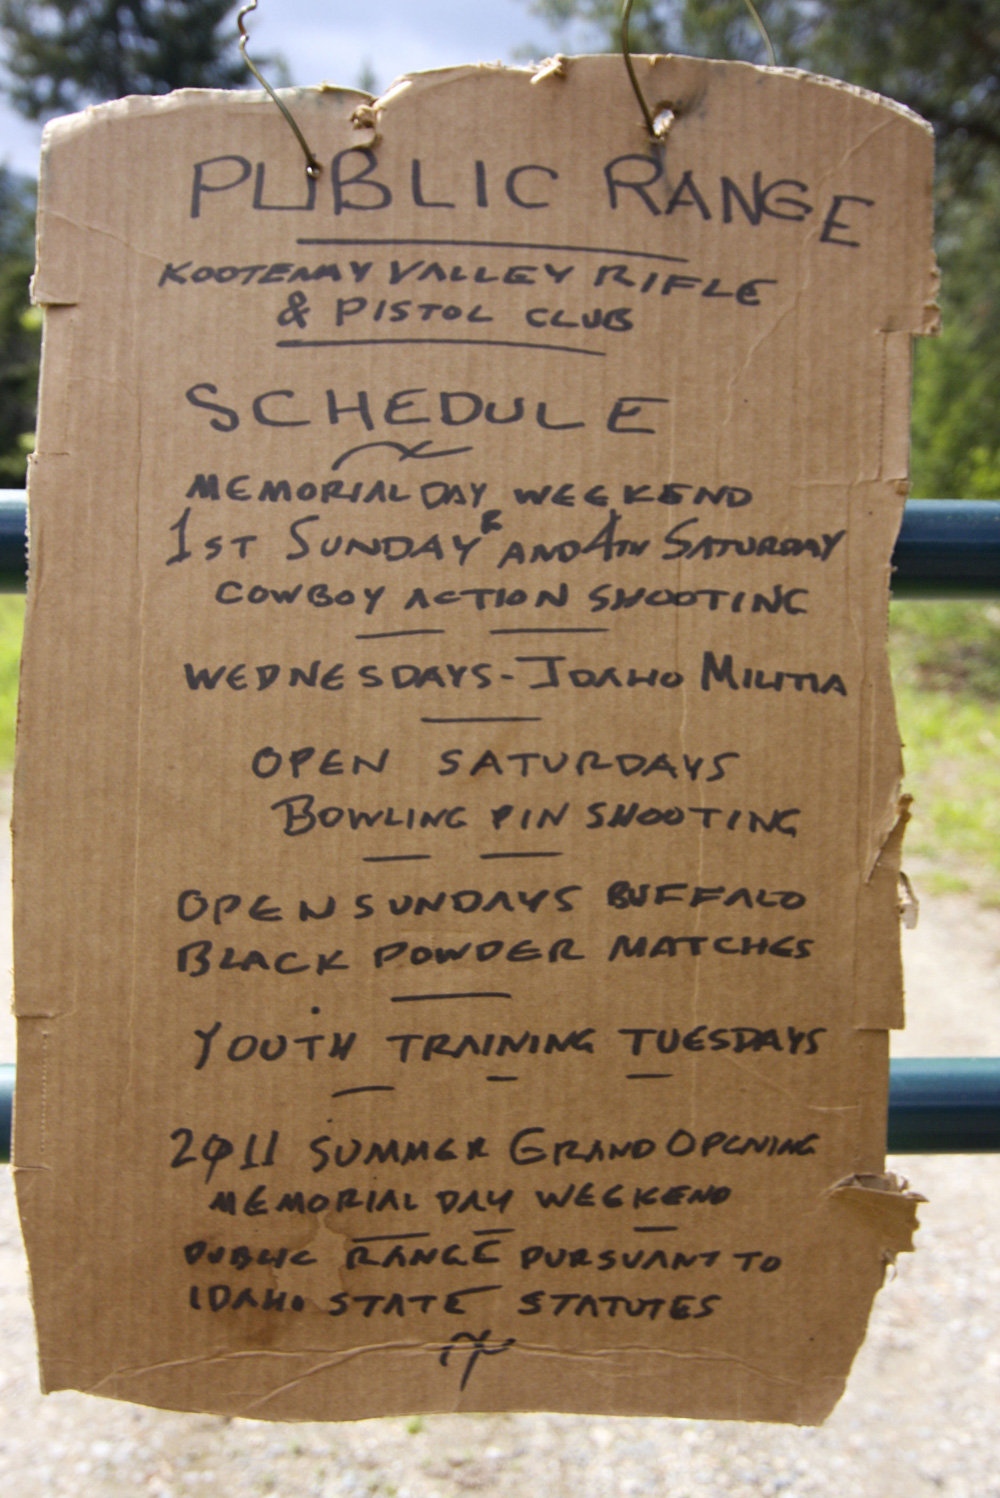 PUBLIC RANGE
KOOTENAY VALLEY RIFLE
& PISTOL CLUB
SCHEDULE
MEMORIAL DAY WEEKEND
1ST SUNDAY AND 4TH SATURDAY
COWBOY ACTION SHOOTING
WEDNESDAYS - IDAHO MILITIA
OPEN SATURDAYS
BOWLING PIN SHOOTING
OPEN SUNDAYS BUFFALO
BLACK POWDER MATCHES
YOUTH TRAINING TUESDAYS
2011 SUMMER GRAND OPENING
MEMORIAL DAY WEEKEND
PUBLIC RANGE PURSUANT TO
IDAHO STATE STATUTES